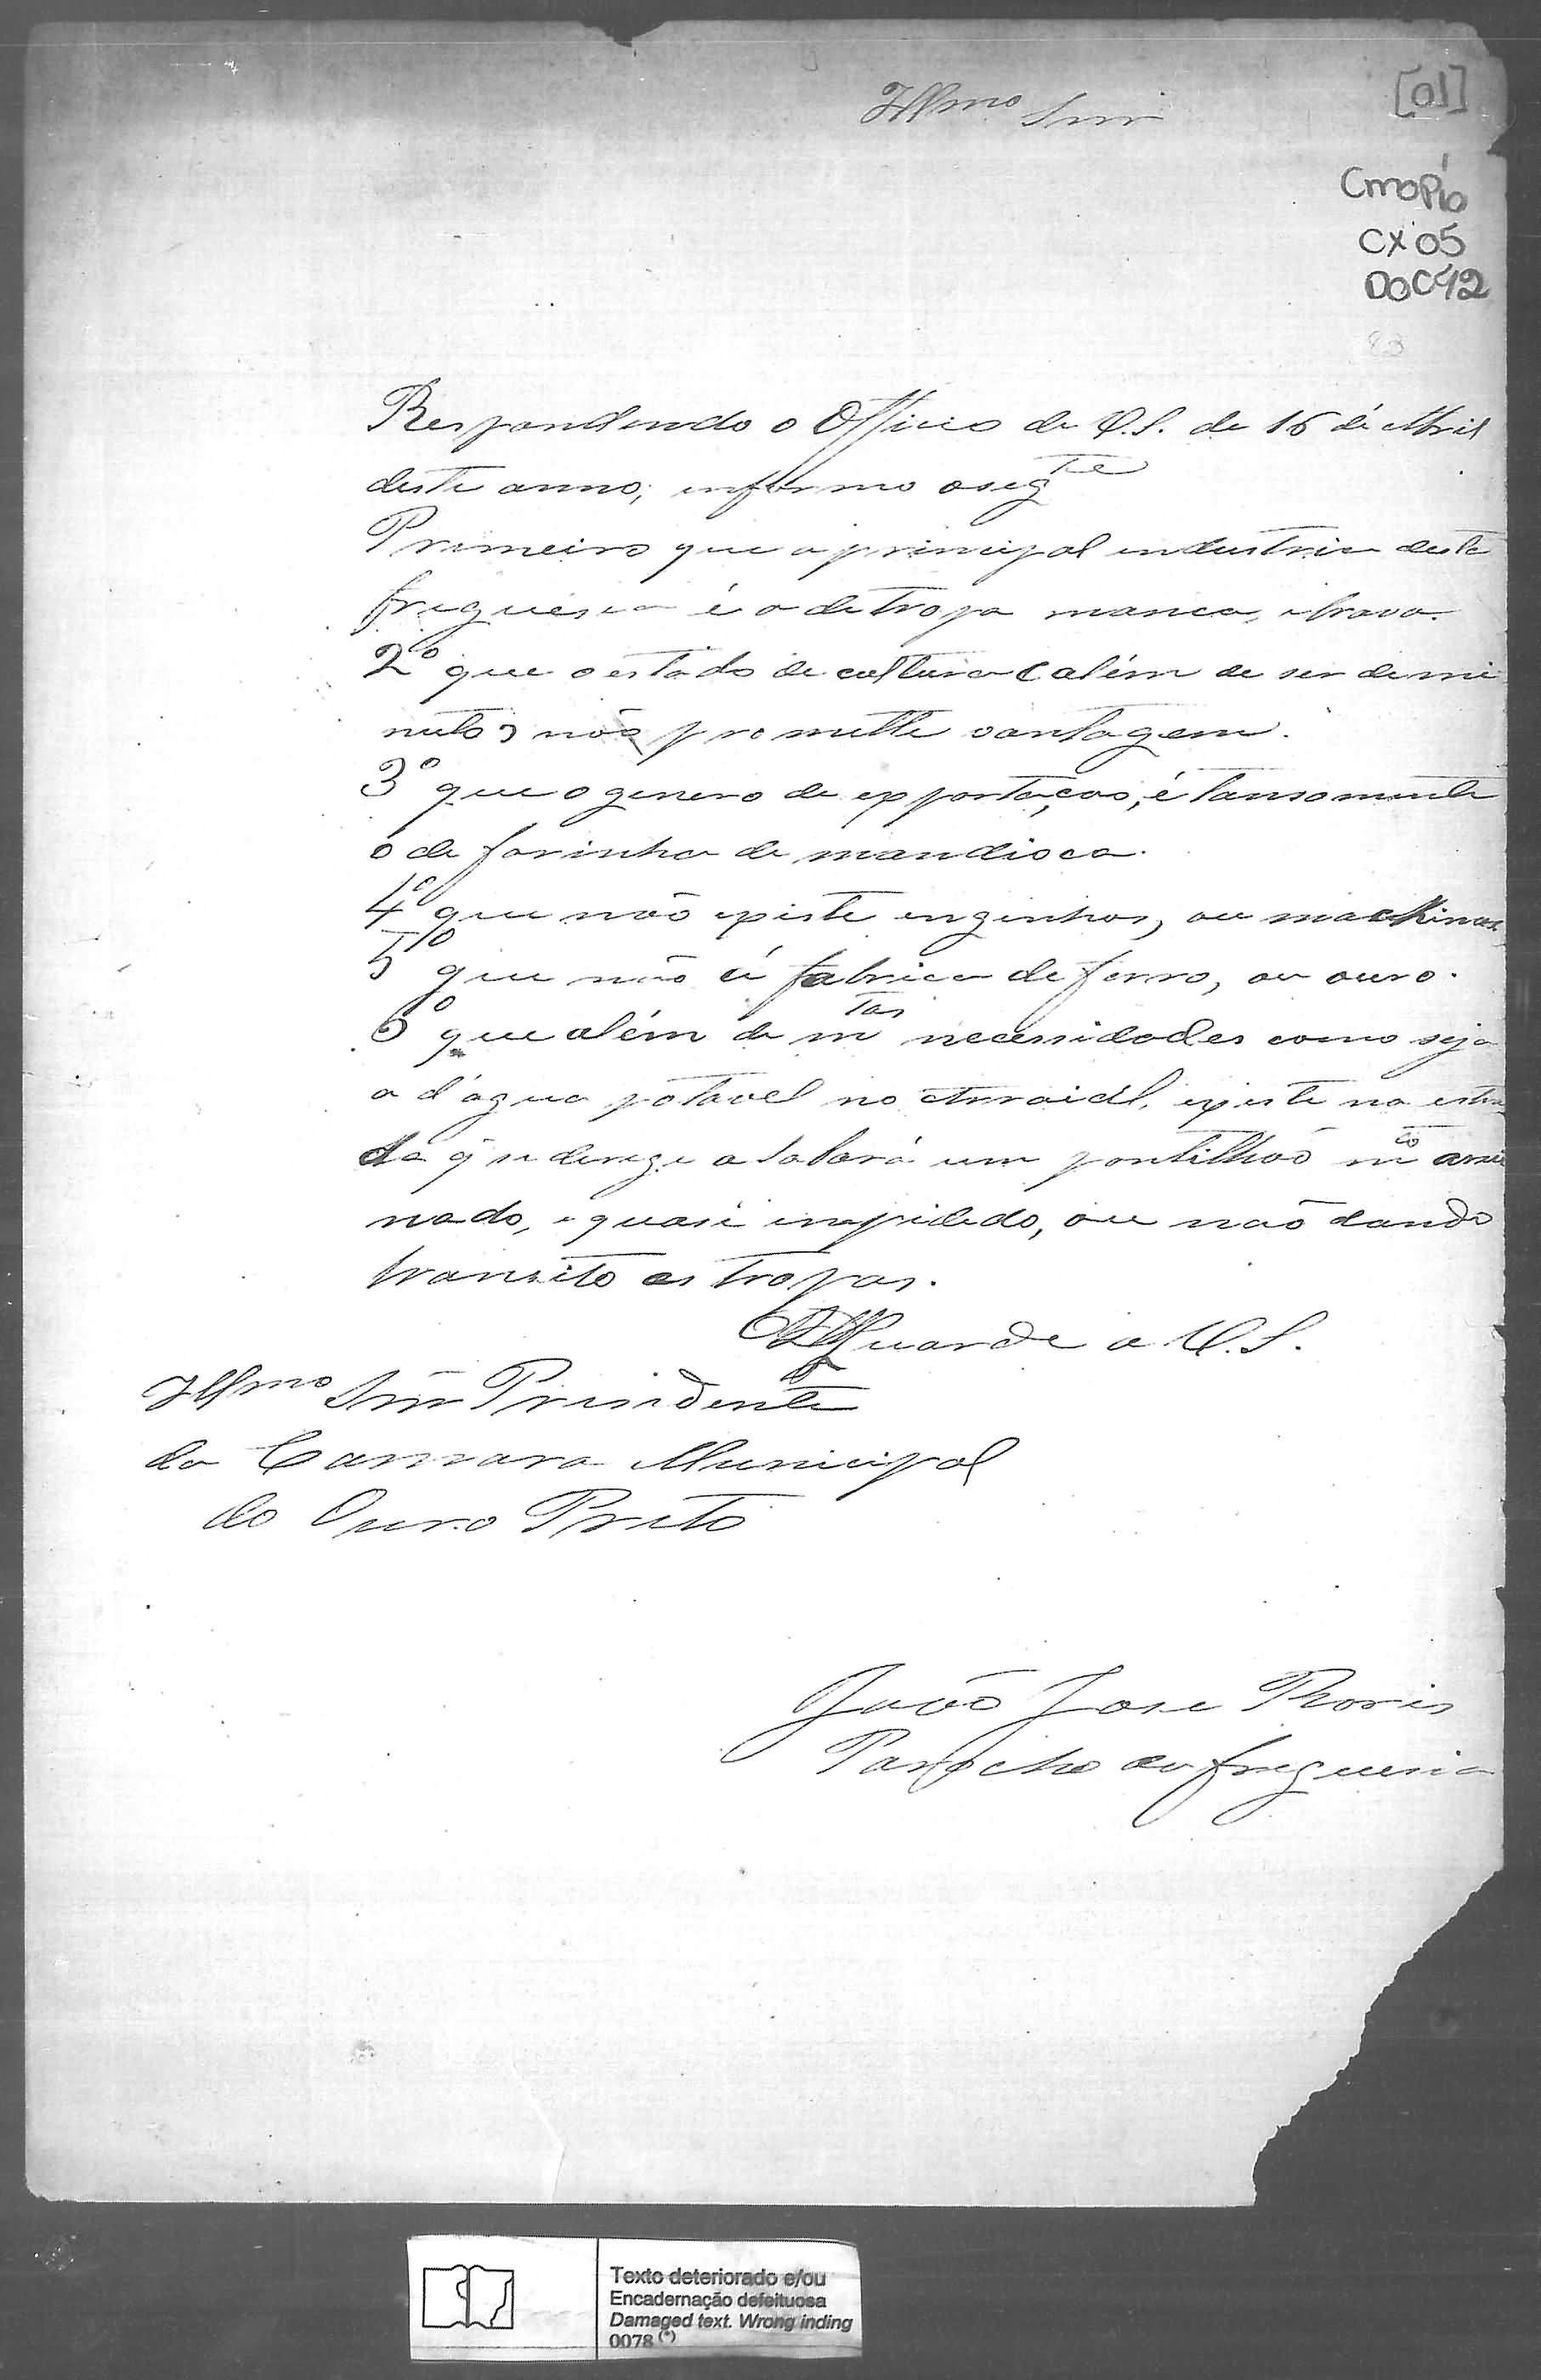 Illmo Snr
[01]
CMOP 10
CX 05
DOC 42
83
Respondendo o Officio de V.S. de 16 de Abril
deste anno, informo o segte
Primeiro que a principal industria desta
freguesia é a de tropa mança, e brava.
2º que o estado de cultura (além de ser demi
nuto) não promette vantagem.
3º que o genero de exportação, é tansomente
o de farinha de mandioca.
4º que não existe enginhos, ou machinas,
5º que não á fabrica de ferro, ou ouro.
6º que além de mtas necessidades como seja
a d'agua potavel no Arraial, existe na estra
da q̃ se derege a Sabará um pontilhão mto arrui
nado, e quasi impedido, ou não dando
transito as tropas.
DGuarde a V.S.
Illmo Snr Presidente
da Camara Municipal
do Ouro Preto
João Jose
Parocho da freguesia
Texto deteriorado e/ou
Encadernação defeituosa
Damaged text. Wrong inding
0078 (*)